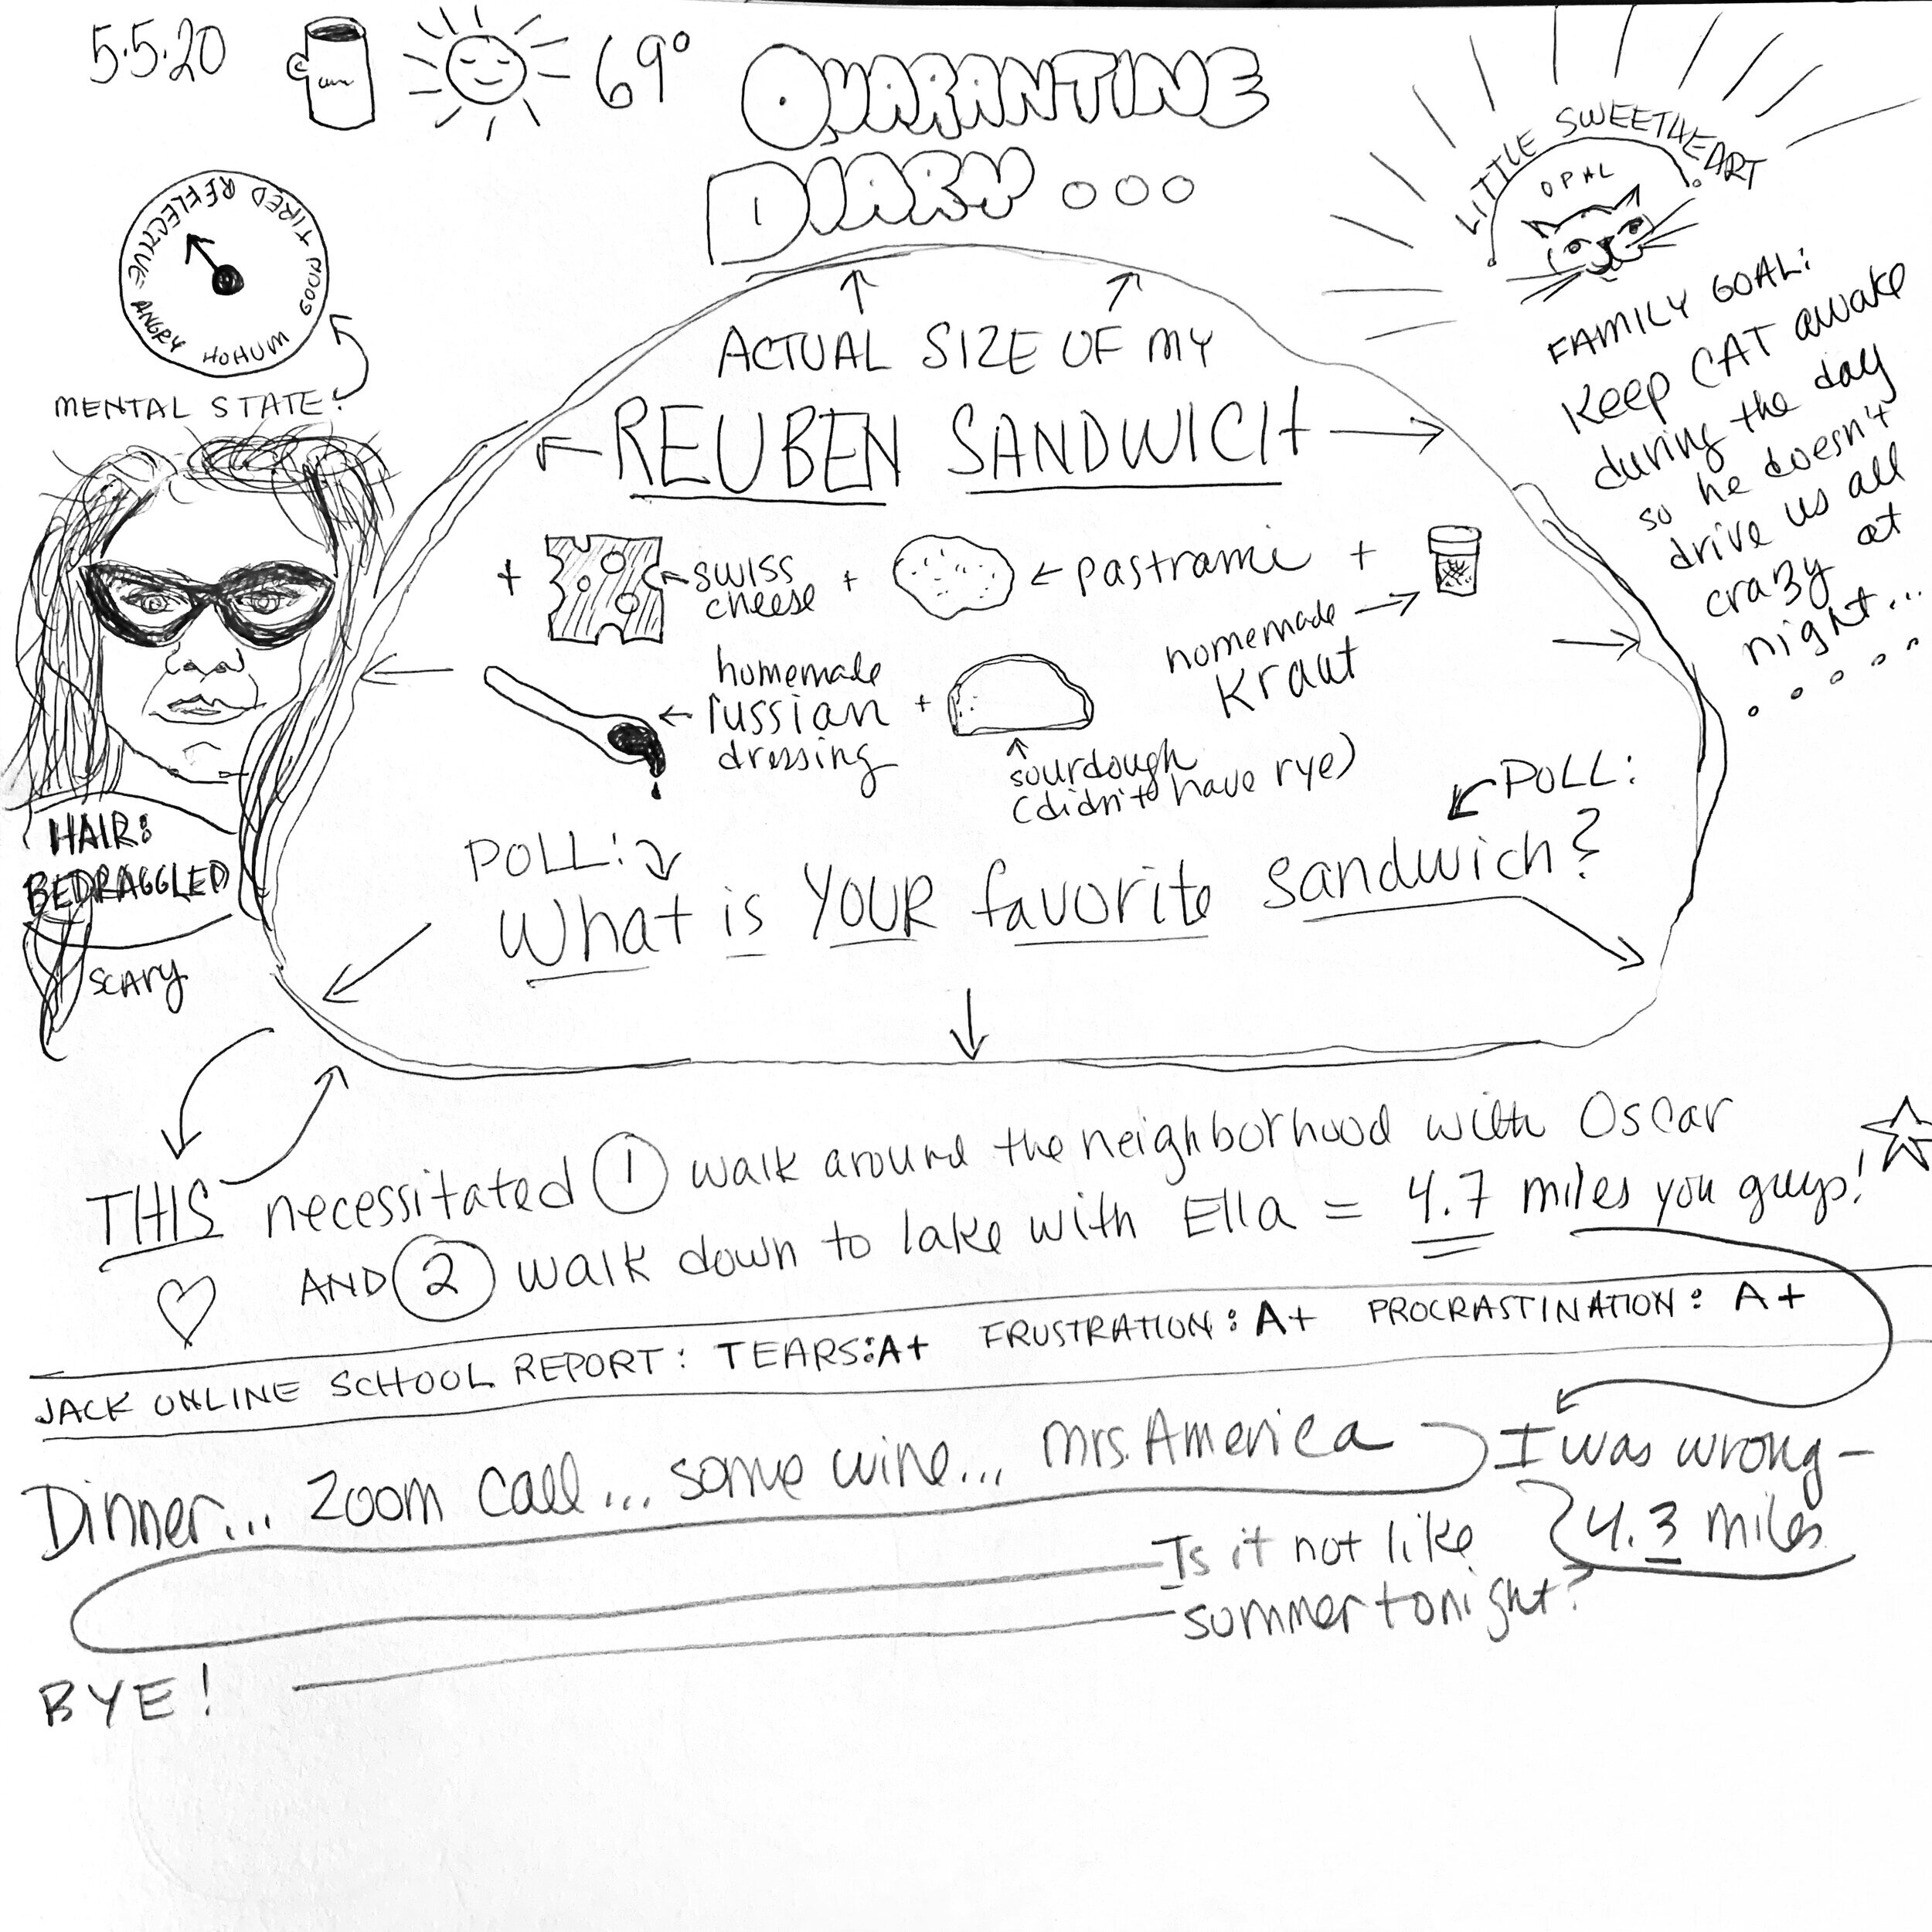 5.5.20
69°
QUARANTINE
DIARY ooo
LITTLE SWEETHEART
OPAL
FAMILY GOAL:
Keep CAT awake
during the day
so he doesn't
drive us all
crazy at
night...
REFLECTIVE TIRED + GOOD HOHUM ANGRY
MENTAL STATE:
ACTUAL SIZE OF MY
REUBEN SANDWICH
+ swiss cheese + pastrami +
homemade
Kraut
homemade
russian +
dressing
sourdough
(didn't have rye)
HAIR:
BEDRAGGLED
SCARY
POLL:
POLL:
What is YOUR favorite sandwich?
THIS necessitated 1 walk around the neighborhood with Oscar
AND 2 walk down to lake with Ella = 4.7 miles you guys!
JACK ONLINE SCHOOL REPORT: TEARS: A+ FRUSTRATION: A+ PROCRASTINATION: A+
Dinner... Zoom call... some wine... Mrs. America
I was wrong –
4.3 miles
Is it not like
summer tonight?
BYE!